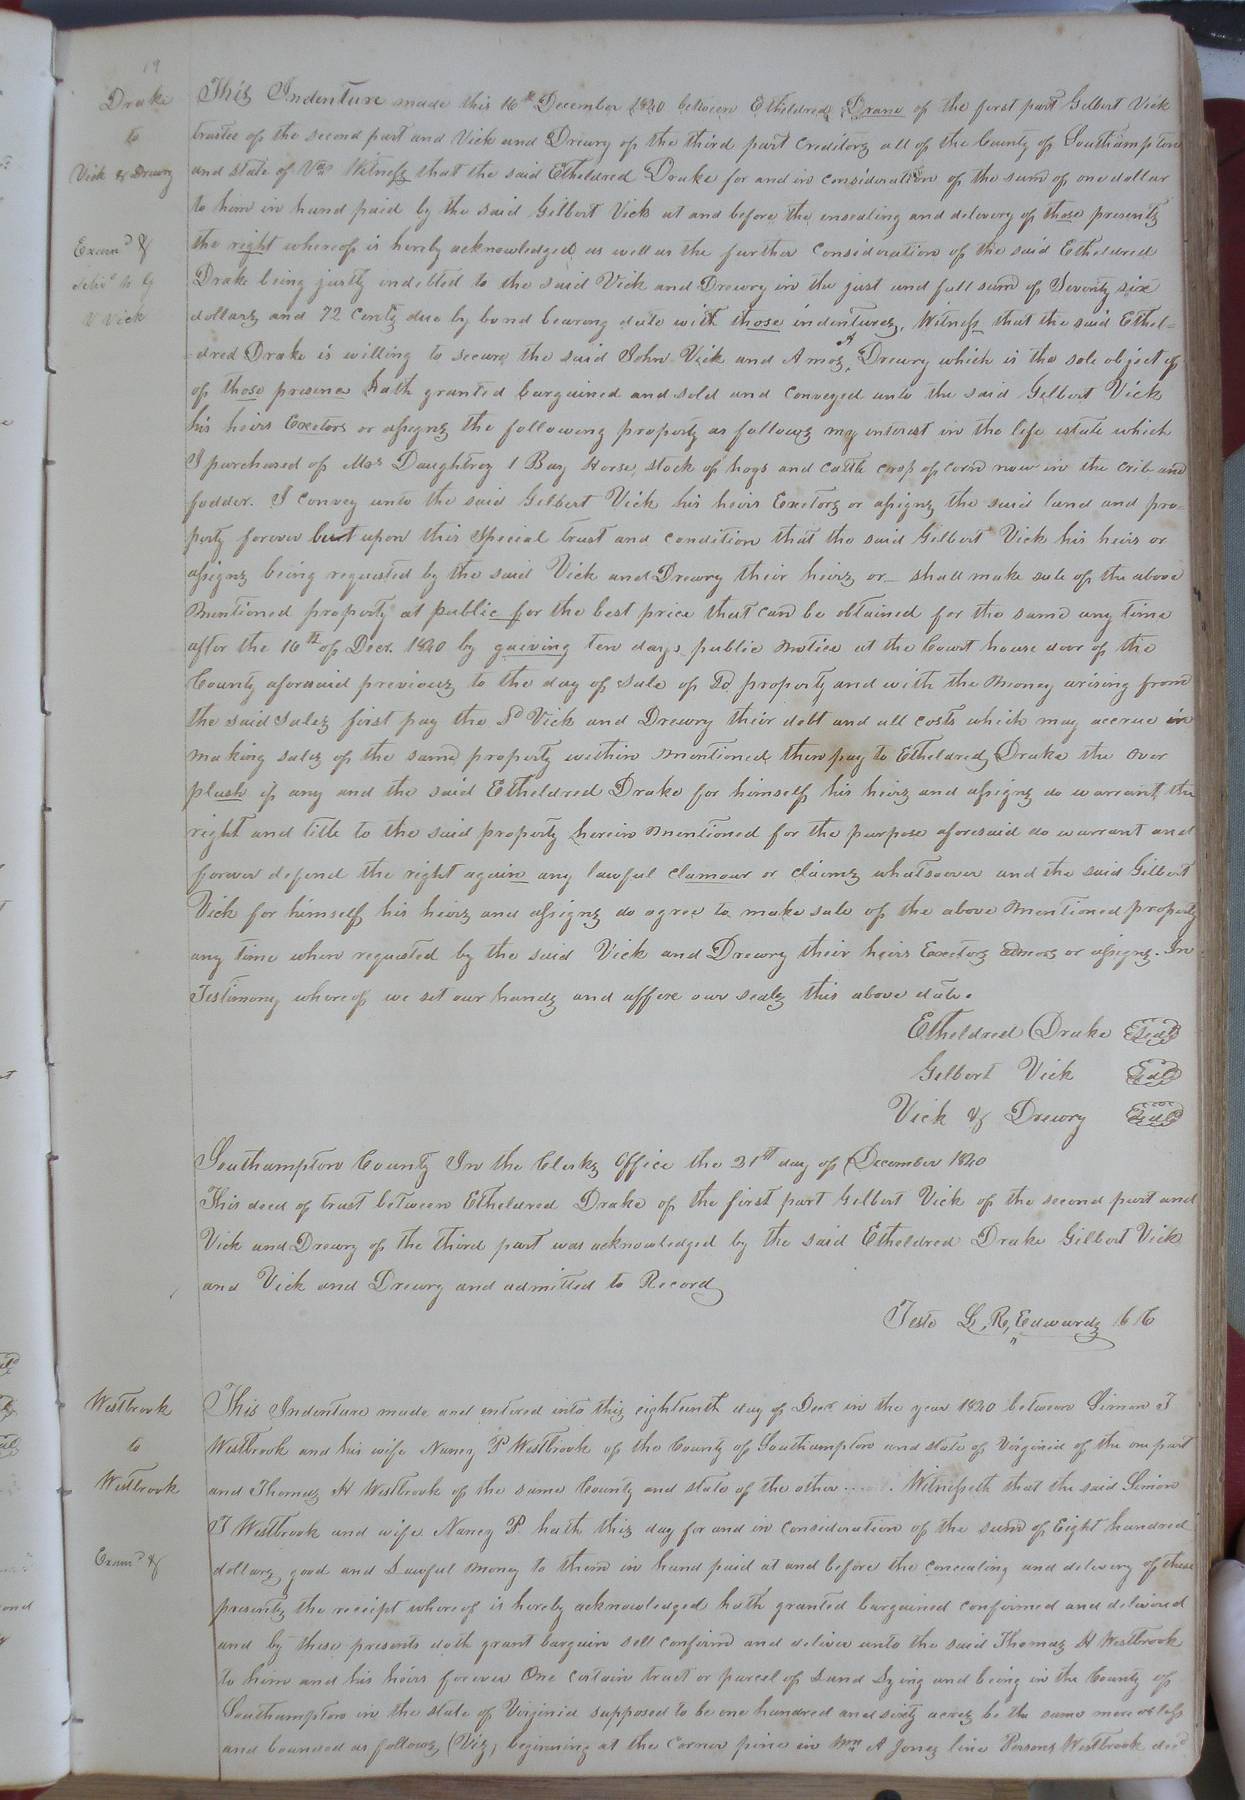 19
Drake
to
Vick & Drewry
Exam.d &
deliv.d to G
V Vick
This Indenture made this 16th December 1840 between Etheldred Drane of the first part Gilbert Vick
trustee of the second part and Vick and Drewry of the third part Creditors all of the County of Southampton
and state of Va. Witness that the said Etheldred Drake for and in consideration of the sum of one dollar
to him in hand paid by the said Gilbert Vick at and before the ensealing and delivery of those presents
the right whereof is hereby acknowledged as well as the further Consideration of the said Etheldred
Drake being justly indebted to the said Vick and Drewry in the just and full sum of Seventy six
dollars and 72 Cents due by bond bearing date with those indentures. Witness that the said Ethel=
=dred Drake is willing to secure the said John Vick and Amos Drewry which is the sole object of
of those presence hath granted bargained and sold and conveyed unto the said Gilbert Vick
his heirs Exectors or assigns the following property as follows my interest in the life estate which
I purchased of Mrs Daughtrey 1 Bay Horse, stock of hogs and Cattle crop of corn now in the crib and
fodder. I convey unto the said Gilbert Vick his heirs Exectors or assigns the said land and pro=
perty forever but upon this Special trust and condition that the said Gilbert Vick his heirs or
assigns being requested by the said Vick and Drewry their heirs or shall make sale of the above
mentioned property at public for the best price that can be obtained for the same any time
after the 16th of Decr. 1840 by gaiving ten days public notice at the Court house door of the
County aforesaid previous to the day of sale of Sd property and with the money arising from
the said sales first pay the Sd Vick and Drewry their debt and all costs which may accrue in
making sales of the same property within mentioned then pay to Etheldred Drake the over
plush if any and the said Etheldred Drake for himself his heirs and assigns do warrant the
right and title to the said property herein mentioned for the purpose aforesaid do warrant and
forever defend the right again any lawful clamour or claims whatsoever and the said Gilbert
Vick for himself his heirs and assigns do agree to make sale of the above mentioned property
any time when requested by the said Vick and Drewry their heirs Exectors admors or assigns. In
Testimony whereof we set our hands and affixe our seals this above date.
Etheldred Drake Seal
Gilbert Vick Seal
Vick & Drewry Seal
Southampton County In the Clerks Office the 21st day of December 1840
This deed of trust between Etheldred Drake of the first part Gilbert Vick of the second part and
Vick and Drewry of the third part was acknowledged by the said Etheldred Drake Gilbert Vick
and Vick and Drewry and admitted to Record
Teste L. R. Edwards CC
Westbrook
to
Westbrook
Exam.d &
This Indenture made and entered into this eighteenth day of Decr in the year 1840 between Simon T
Westbrook and his wife Nancy P Westbrook of the County of Southampton and state of Virginia of the one part
and Thomas H Westbrook of the same County and state of the other .... Witnesseth that the said Simon
T Westbrook and wife Nancy P hath this day for and in consideration of the sum of Eight hundred
dollars good and Lawful money to them in hand paid at and before the concealing and delivery of these
presents the receipt whereof is hereby acknowledged hath granted bargained confirmed and delivered
and by these presents doth grant bargain sell confirm and deliver unto the said Thomas H Westbrook
to him and his heirs forever One certain tract or parcel of Land Lying and being in the County of
Southampton in the state of Virginia supposed to be one hundred and sixty acres be the same more or less
and bounded as follows, (Viz) beginning at the corner pine in Wm A Jones line Persons Westbrook decd